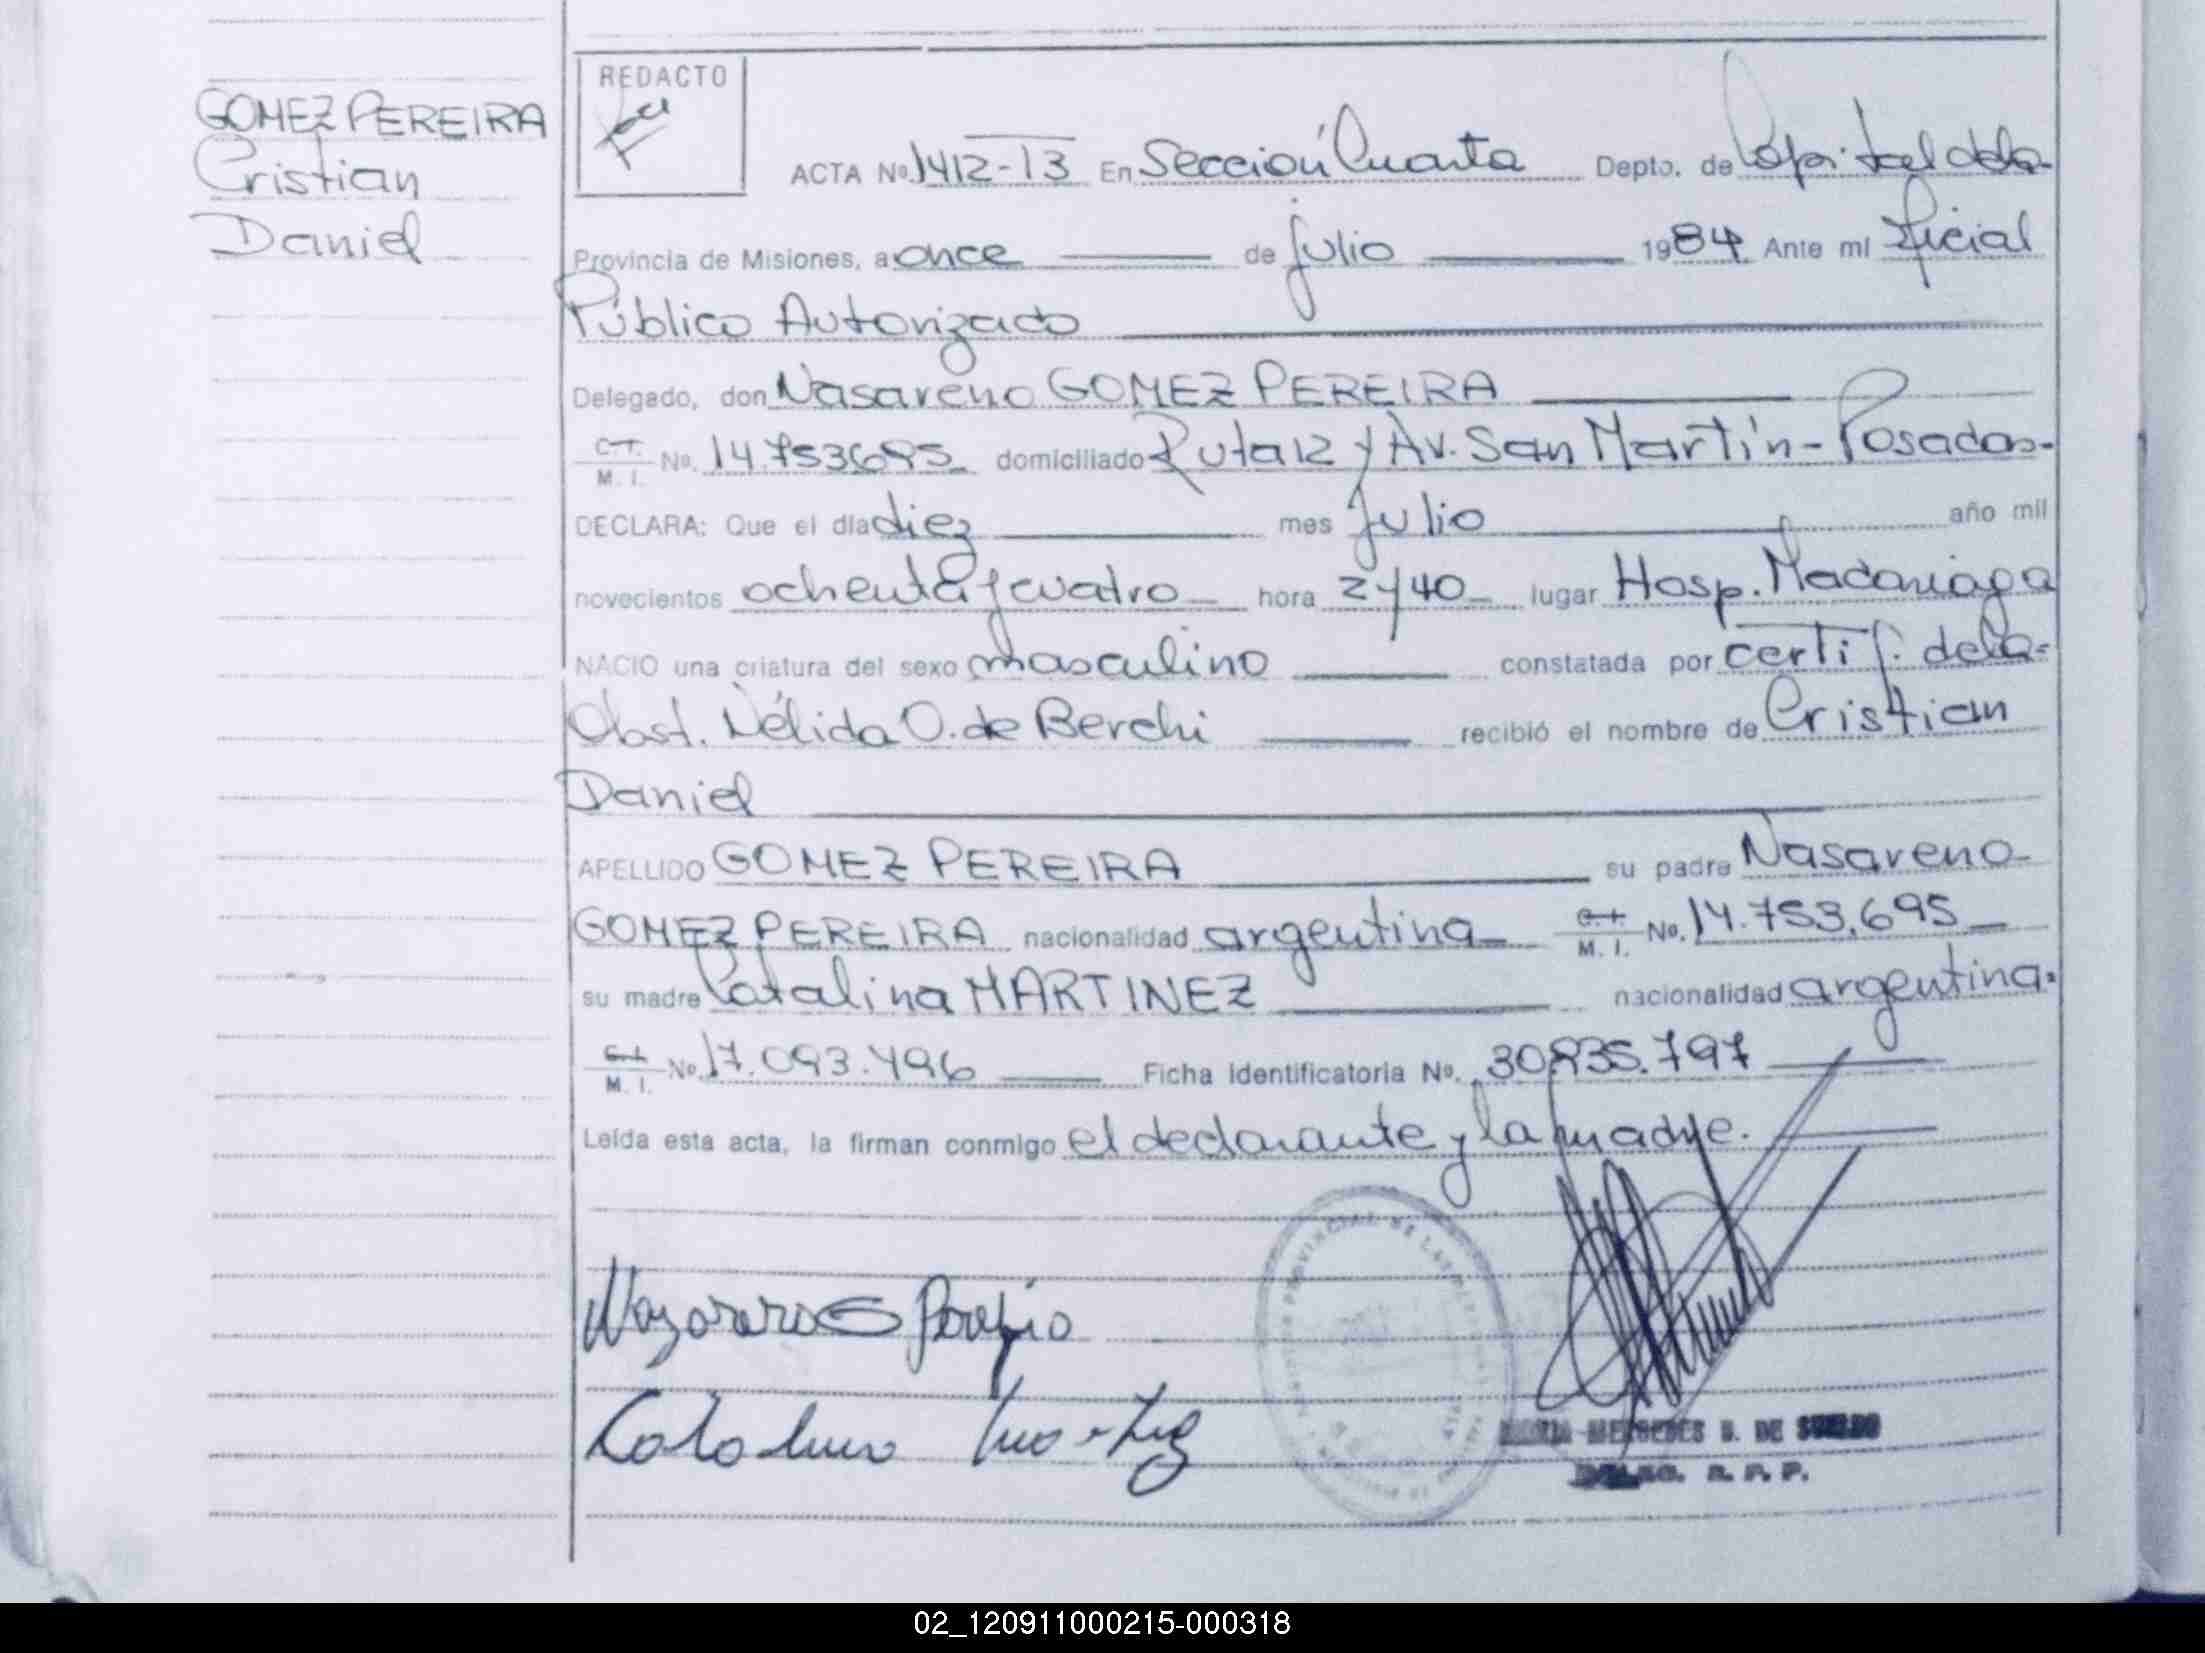 GOMEZ PEREIRA
Cristian
Daniel
REDACTO
ACTA Nº 1412-13 En Sección Cuarta Depto. de Capital de la
Provincia de Misiones, a once de julio 1984 Ante mí Oficial
Público Autorizado
Delegado, don Nasareno GOMEZ PEREIRA
C.I. M. I. Nº. 14.753695 domiciliado Ruta 12 y Av. San Martín - Posadas-
DECLARA: Que el día diez mes julio año mil
novecientos ochenta y cuatro hora 2 y 40 lugar Hosp. Madariaga
NACIO una criatura del sexo masculino constatada por certif. de la=
Obst. Nélida O. de Berchi recibió el nombre de Cristian
Daniel
APELLIDO GOMEZ PEREIRA su padre Nasareno
GOMEZ PEREIRA nacionalidad argentina C.I. M. I. Nº. 14.753.695
su madre Catalina MARTINEZ nacionalidad argentina.
C.I. M. I. Nº. 17.093.496 Ficha Identificatoria Nº. 30835.797
Leída esta acta, la firman conmigo el declarante y la madre.
PROVINCIAL DE LAS
MERCEDES B. DE
R. P. P.
02_120911000215-000318